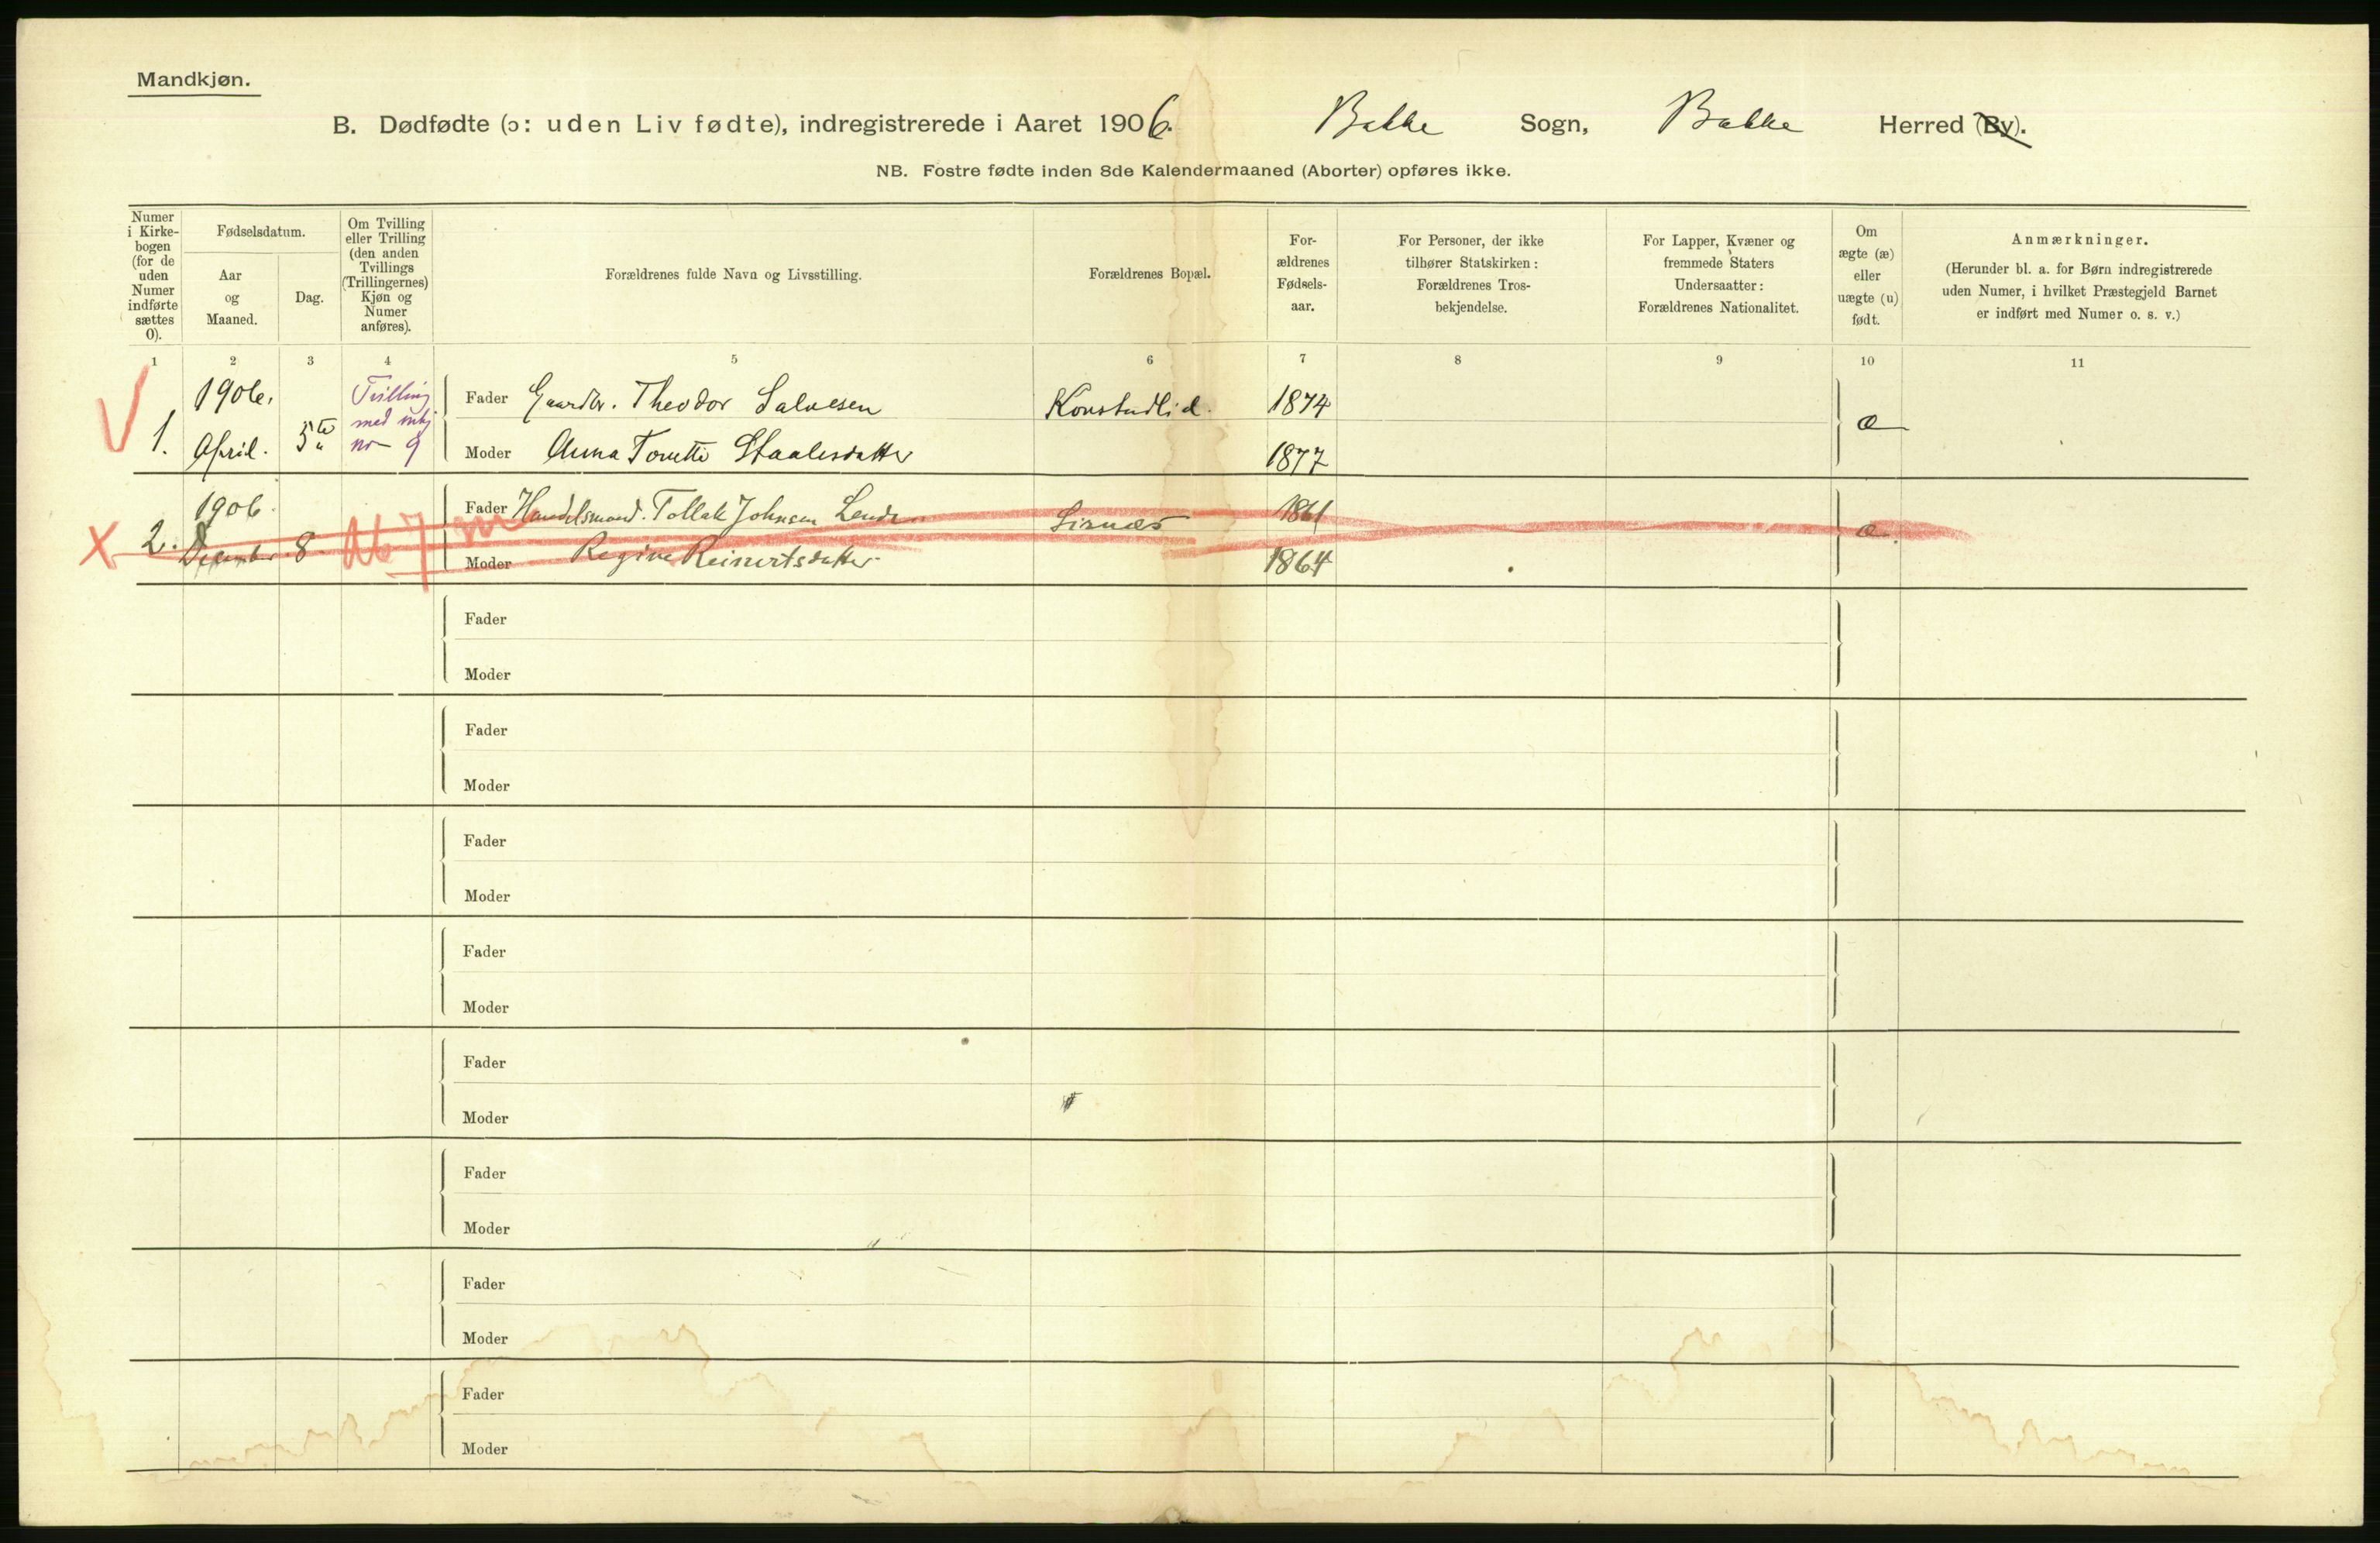 Mandkjøn.
B. Dødfødte (ɔ: uden Liv fødte), indregistrerede i Aaret 1906. Bakke Sogn, Bakke Herred (By).
NB. Fostre fødte inden 8de Kalendermaaned (Aborter) opføres ikke.
Numer
i Kirke-
bogen
(for de
uden
Numer
indførte
sættes
0).
Fødselsdatum.
Aar
og
Maaned.
Dag.
Om Tvilling
eller Trilling
(den anden
Tvillings
(Trillingernes)
Kjøn og
Numer
anføres).
Forældrenes fulde Navn og Livsstilling.
Forældrenes Bopæl.
For-
ældrenes
Fødsels-
aar.
For Personer, der ikke
tilhører Statskirken:
Forældrenes Tros-
bekjendelse.
For Lapper, Kvæner og
fremmede Staters
Undersaatter:
Forældrenes Nationalitet.
Om
ægte (æ)
eller
uægte (u)
født.
Anmærkninger.
(Herunder bl. a. for Børn indregistrerede
uden Numer, i hvilket Præstegjeld Barnet
er indført med Numer o. s. v.)
1 2 3 4 5 6 7 8 9 10 11
1906. Tvilling Fader Gaardbr. Theodor Salvesen 1874
1. April. 5te med nr 9 Moder Anna Staalesdatter 1877 æ
1906. Fader Handelsmand. Tollak Johnsen Lende Sirnæs 1861
2. December 8 Ab 7 m Moder Regine Reinertsdatter 1864 æ
Fader
Moder
Fader
Moder
Fader
Moder
Fader
Moder
Fader
Moder
Fader
Moder
Fader
Moder
Fader
Moder